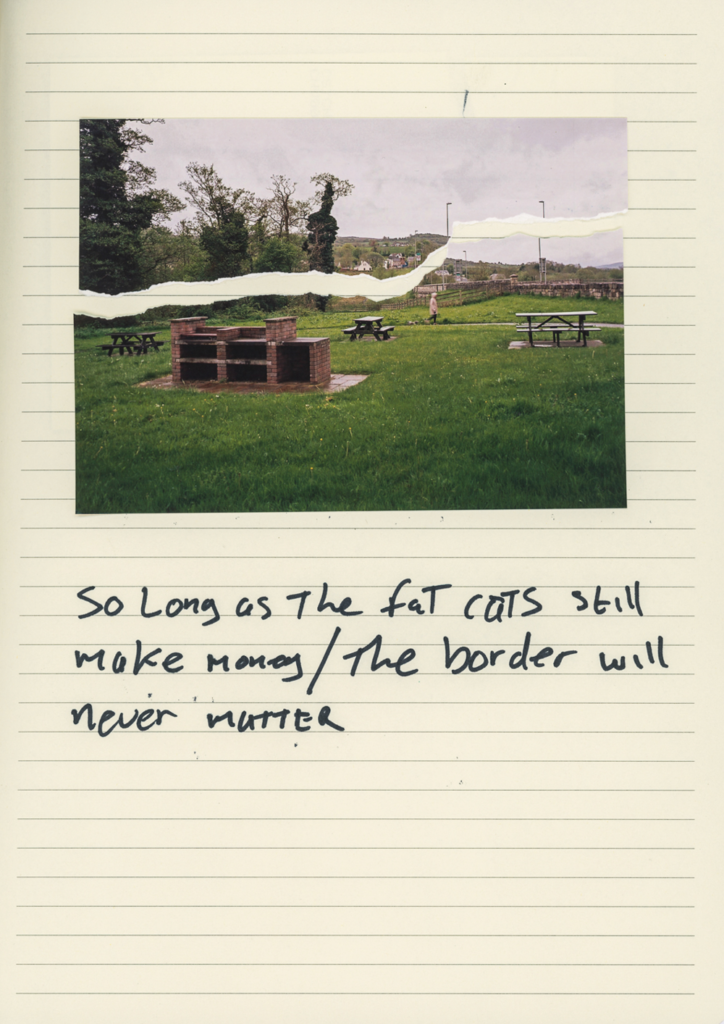 So Long as The faT caTS still
make money/The border will
never MATTER